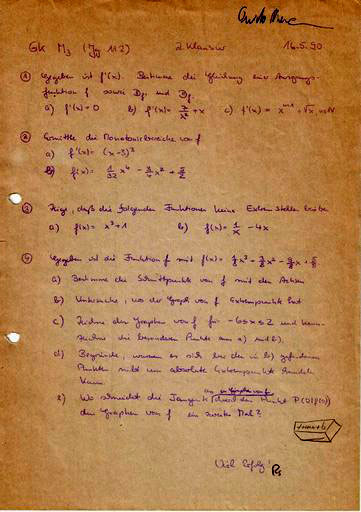 GK M3 (Jg 112) 2. Klausur 16.5.90
① Gegeben ist f'(x). Bestimme die Gleichung einer Ausgangs-
funktion f sowie Df' und Df.
a) f'(x) = 0 b) f'(x) = + x c) f'(x) =
② Ermittle die Monotoniebereiche von f
a) f'(x) = (x-3)³
b) f(x) = 1/32 x⁴ -
③ Zeige, daß die folgenden Funktionen keine Extremstellen
a) f(x) = x³+1 b) f(x) = 1/x - 4x
④ Gegeben ist die Funktion f mit f(x) =
a) Bestimme die Schnittpunkte von f mit den Achsen
b) Untersuche, wo der Graph von f Extrempunkte hat
c) Zeichne den Graphen von f für -6≤x≤2 und kenn-
zeichne die besonderen Punkte aus a) und b).
d) Begründe, warum es sich bei den in b) gefundenen
Punkten nicht um absolute Extrempunkte handeln
kann
e) Wo schneidet die Tangente durch den Punkt P(0|f(0))
den Graphen von f ein zweites Mal?
Viel Erfolg!